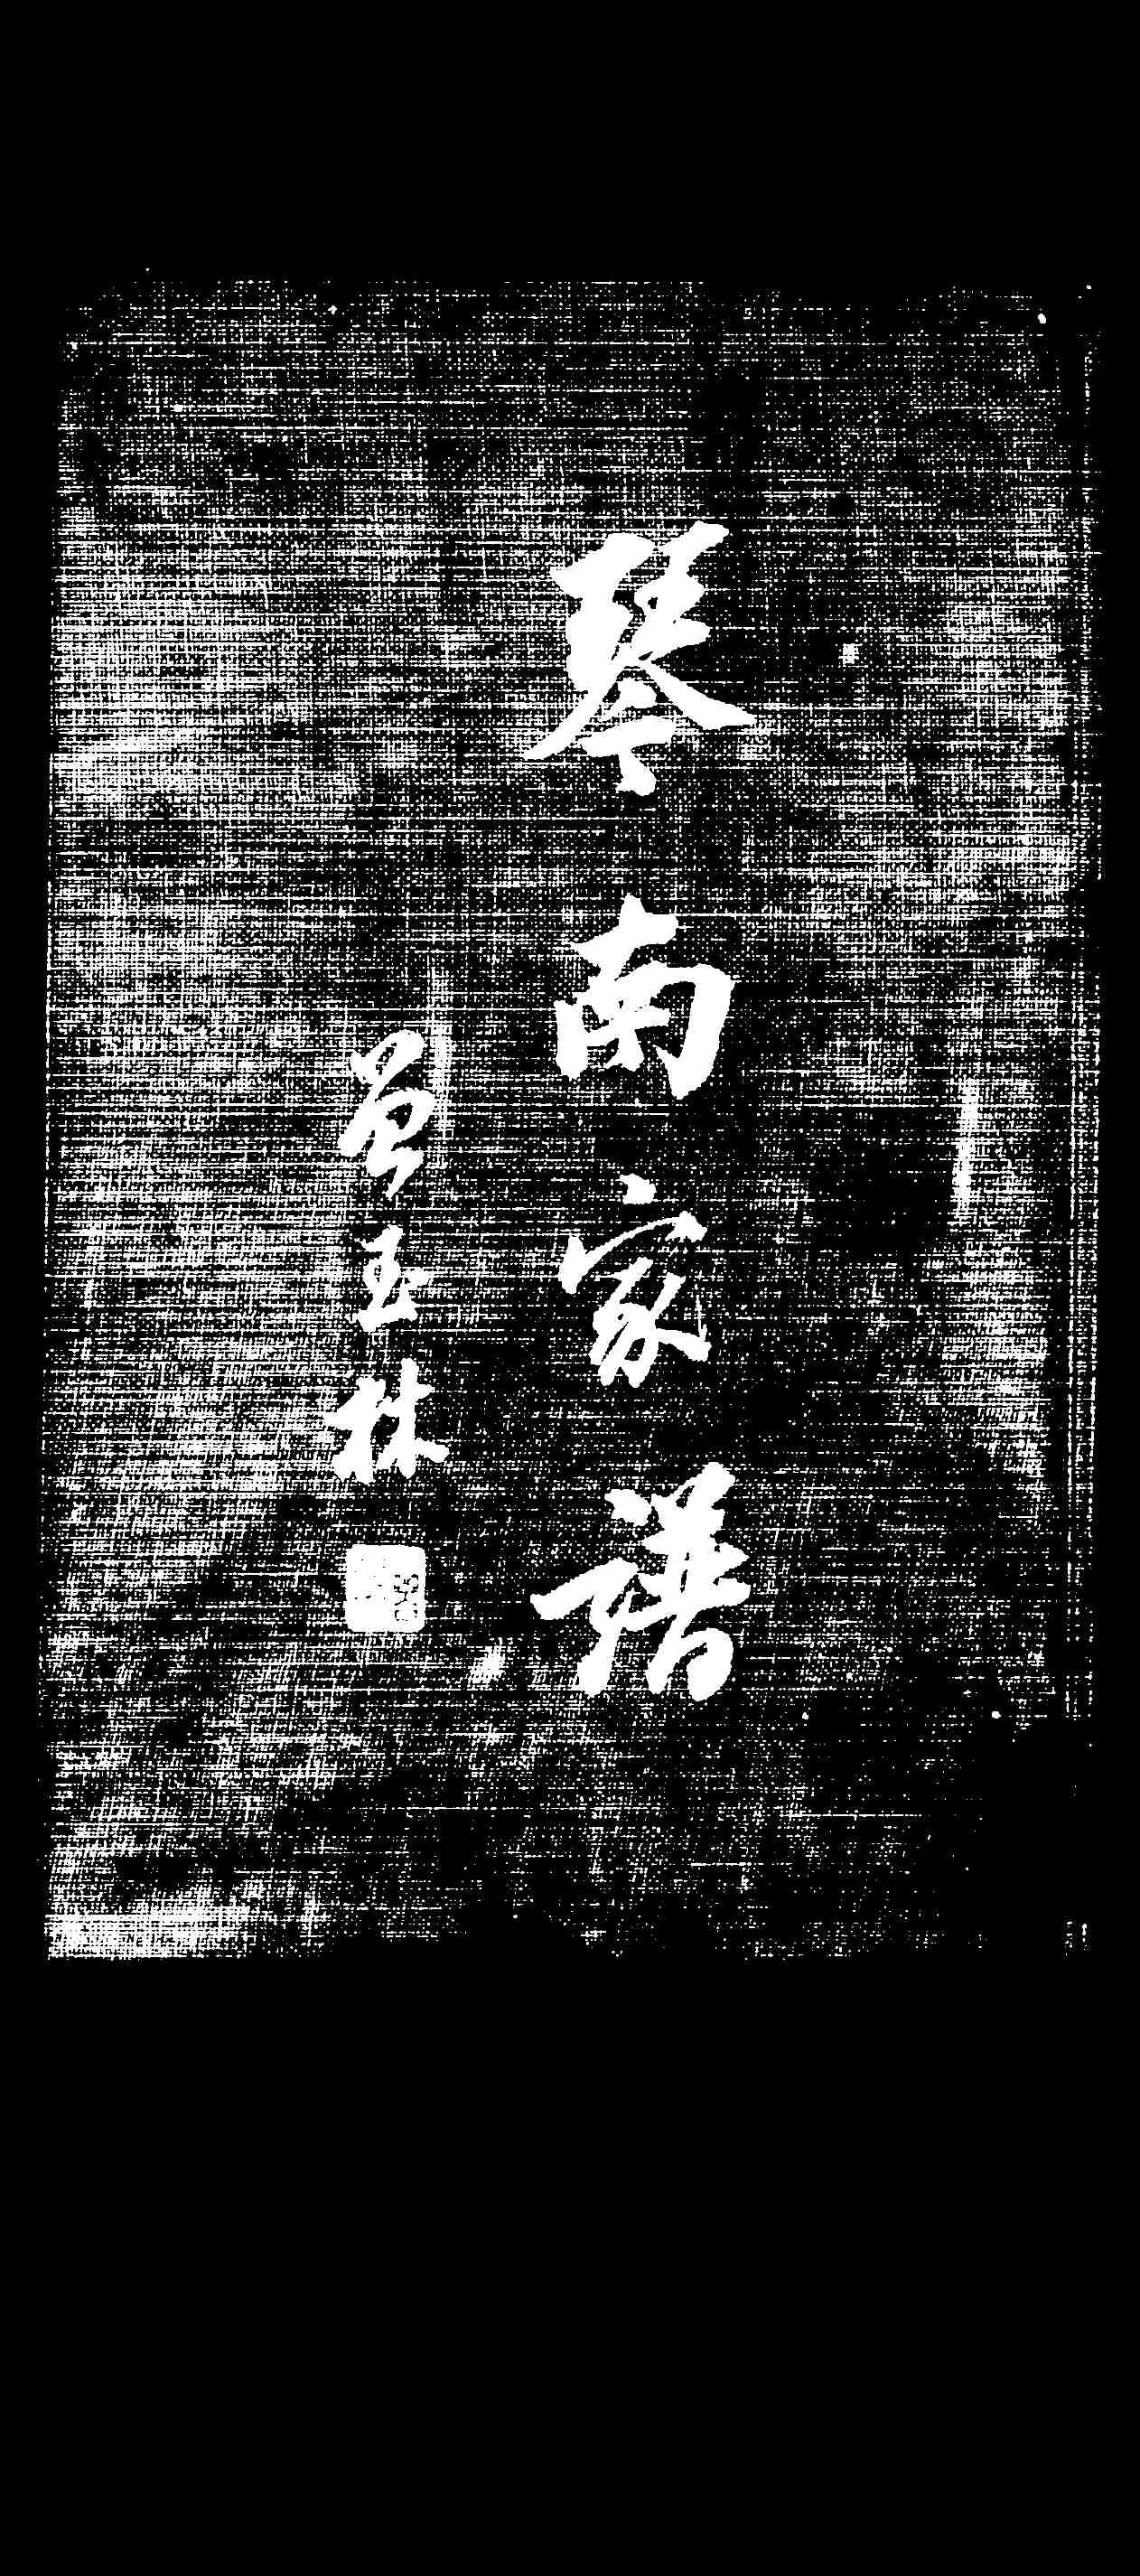 琴南家譜
曾玉林